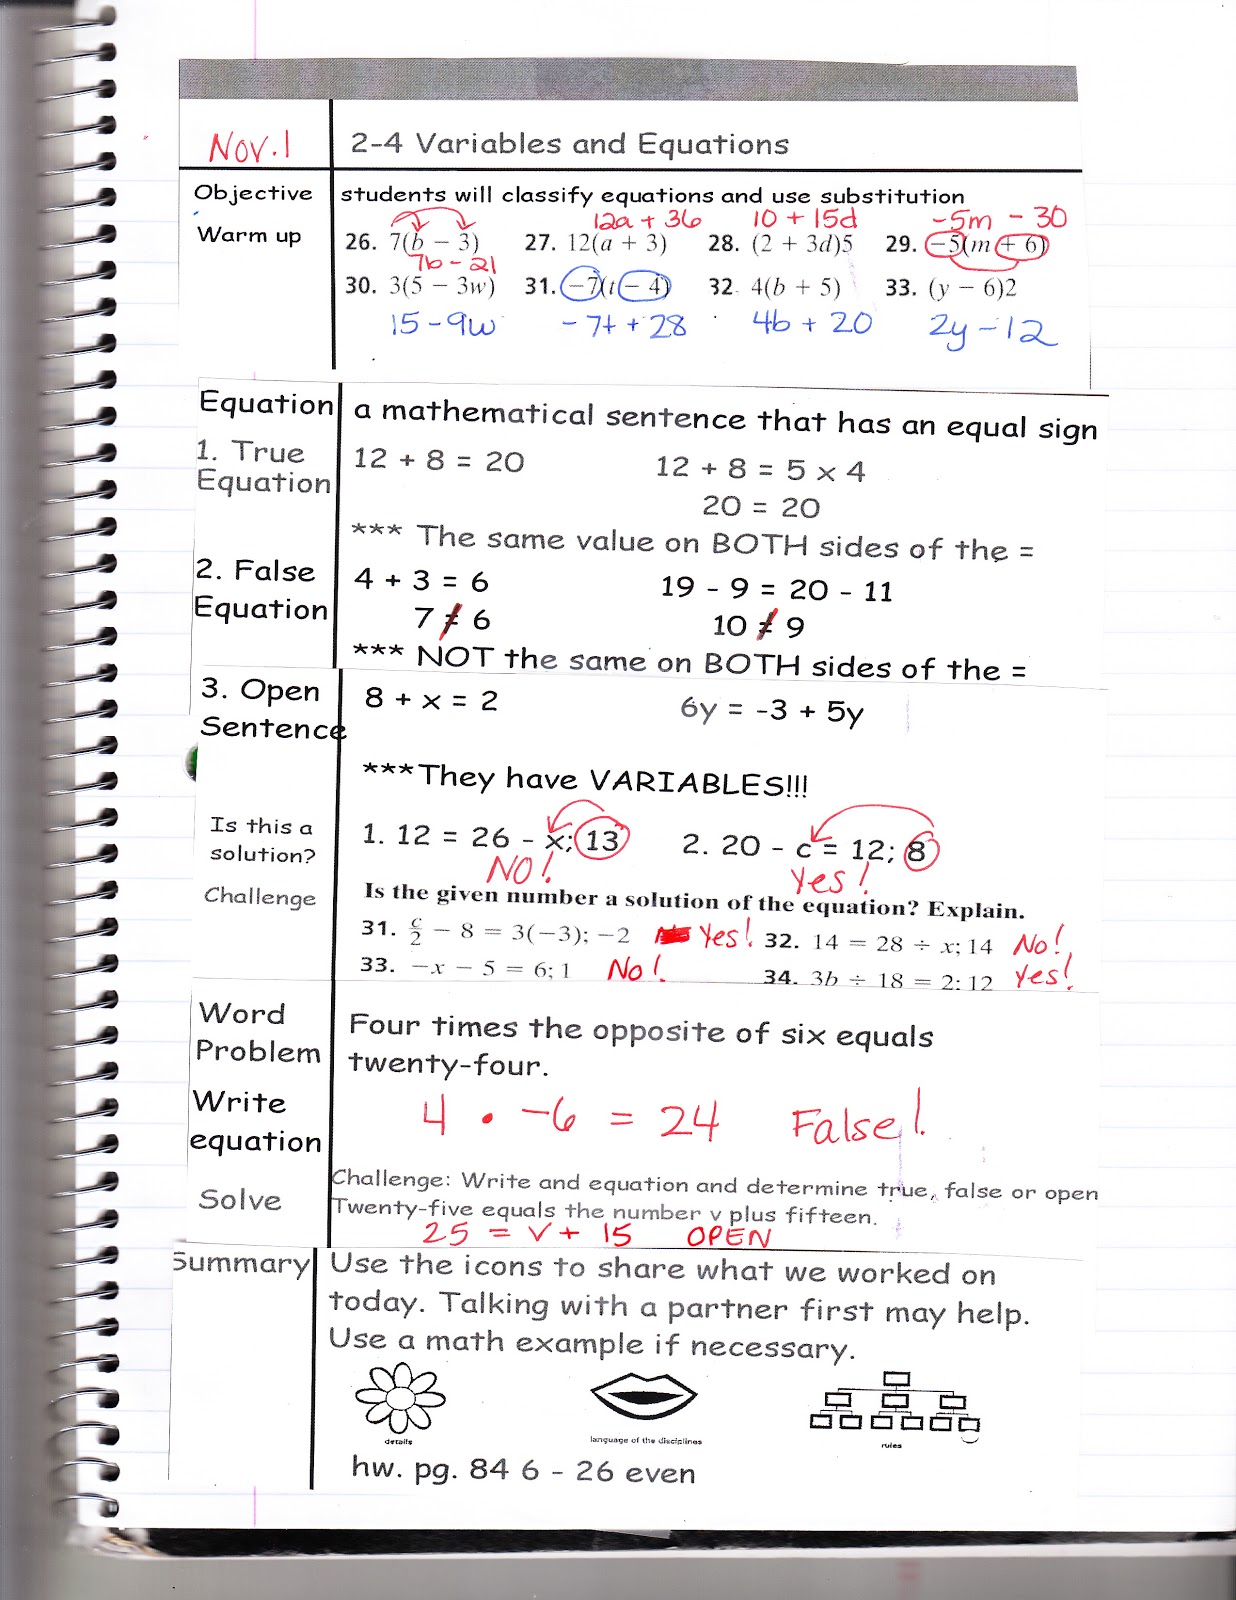 Nov. 1
2-4 Variables and Equations
Objective
students will classify equations and use substitution
Warm up
12a + 36
10 + 15d
-5m - 30
26. 7(b − 3)
27. 12(a + 3)
28. (2 + 3d)5
29. −5(m + 6)
7b - 21
30. 3(5 − 3w)
31. −7(t − 4)
32. 4(b + 5)
33. (y − 6)2
15 - 9w
- 7t + 28
4b + 20
2y - 12
Equation
a mathematical sentence that has an equal sign
1. True
Equation
12 + 8 = 20
12 + 8 = 5 x 4
20 = 20
*** The same value on BOTH sides of the =
2. False
Equation
4 + 3 = 6
19 - 9 = 20 - 11
7 ≠ 6
10 ≠ 9
*** NOT the same on BOTH sides of the =
3. Open
Sentence
8 + x = 2
6y = -3 + 5y
***They have VARIABLES!!!
Is this a
solution?
1. 12 = 26 - x; 13
2. 20 - c = 12; 8
NO!
Yes!
Challenge
Is the given number a solution of the equation? Explain.
31. c/2 − 8 = 3(−3); −2 Yes!
32. 14 = 28 ÷ x; 14 No!
33. −x − 5 = 6; 1 No!
34. 3b ÷ 18 = 2; 12 Yes!
Word
Problem
Four times the opposite of six equals
twenty-four.
Write
equation
4 • -6 = 24 False!
Solve
Challenge: Write and equation and determine true, false or open
Twenty-five equals the number v plus fifteen.
25 = v + 15 OPEN
Summary
Use the icons to share what we worked on
today. Talking with a partner first may help.
Use a math example if necessary.
details
language of the disciplines
rules
hw. pg. 84 6 - 26 even